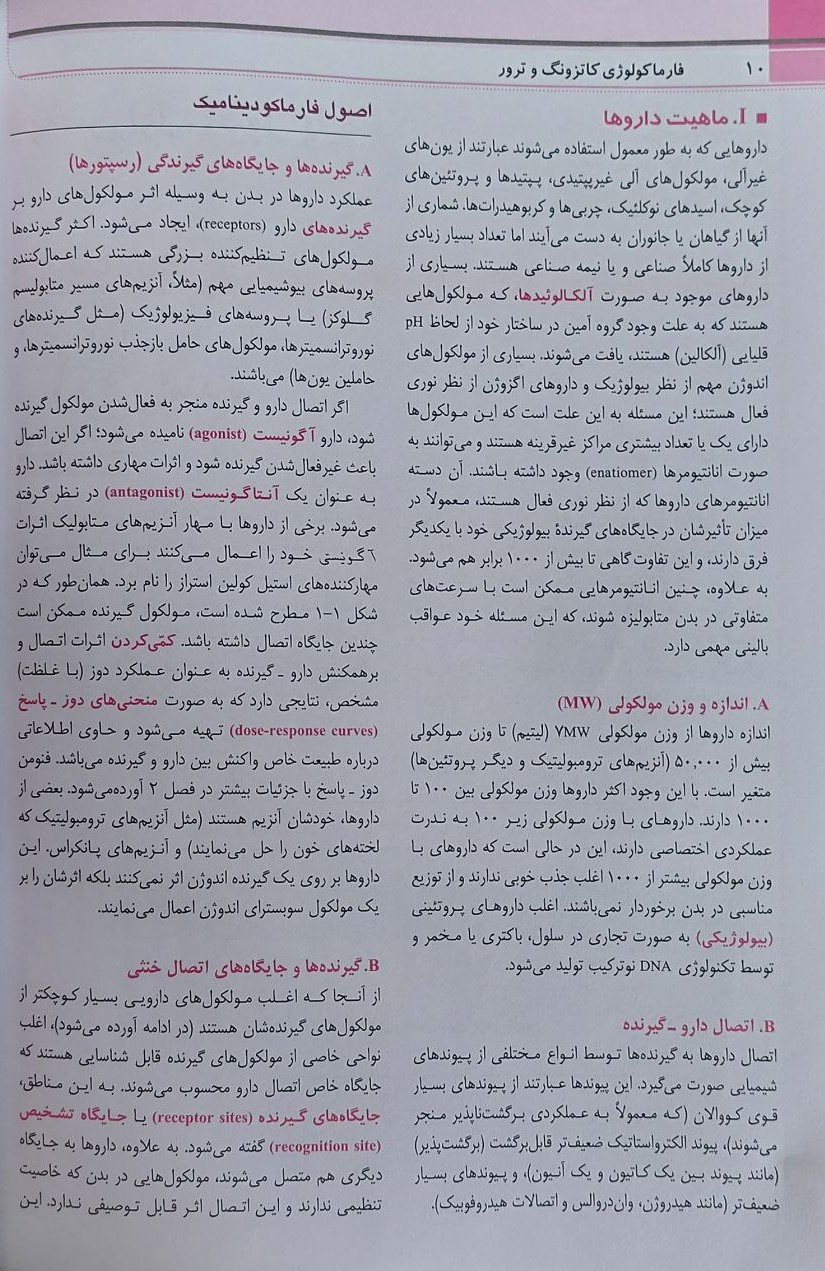 ۱۰ فارماکولوژی کاتزونگ و ترور
I. ماهیت داروها
داروهایی که به طور معمول استفاده می‌شوند عبارتند از یون‌های
غیرآلی، مولکول‌های آلی غیرپپتیدی، پپتیدها و پروتئین‌های
کوچک، اسیدهای نوکلئیک، چربی‌ها و کربوهیدرات‌ها. شماری از
آنها از گیاهان یا جانوران به دست می‌آیند اما تعداد بسیار زیادی
از داروها کاملاً صناعی و یا نیمه صناعی هستند. بسیاری از
داروهای موجود به صورت آلکالوئیدها، که مولکول‌هایی
هستند که به علت وجود گروه آمین در ساختار خود از لحاظ pH
قلیایی (آلکالین) هستند، یافت می‌شوند. بسیاری از مولکول‌های
اندوژن مهم از نظر بیولوژیک و داروهای اگزوژن از نظر نوری
فعال هستند؛ این مسئله به این علت است که این مولکول‌ها
دارای یک یا تعداد بیشتری مراکز غیرقرینه هستند و می‌توانند به
صورت انانتیومرها (enatiomer) وجود داشته باشند. آن دسته
انانتیومرهای داروها که از نظر نوری فعال هستند، معمولاً در
میزان تأثیرشان در جایگاه‌های گیرندهٔ بیولوژیکی خود با یکدیگر
فرق دارند، و این تفاوت گاهی تا بیش از ۱۰۰۰ برابر هم می‌شود.
به علاوه، چنین انانتیومرهایی ممکن است با سرعت‌های
متفاوتی در بدن متابولیزه شوند، که این مسئله خود عواقب
بالینی مهمی دارد.
A. اندازه و وزن مولکولی (MW)
اندازه داروها از وزن مولکولی ۷MW (لیتیم) تا وزن مولکولی
بیش از ۵۰,۰۰۰ (آنزیم‌های ترومبولیتیک و دیگر پروتئین‌ها)
متغیر است. با این وجود اکثر داروها وزن مولکولی بین ۱۰۰ تا
۱۰۰۰ دارند. داروهای با وزن مولکولی زیر ۱۰۰ به ندرت
عملکردی اختصاصی دارند، این در حالی است که داروهای با
وزن مولکولی بیشتر از ۱۰۰۰ اغلب جذب خوبی ندارند و از توزیع
مناسبی در بدن برخوردار نمی‌باشند. اغلب داروهای پروتئینی
(بیولوژیکی) به صورت تجاری در سلول، باکتری یا مخمر و
توسط تکنولوژی DNA نوترکیب تولید می‌شود.
B. اتصال دارو ـ گیرنده
اتصال داروها به گیرنده‌ها توسط انواع مختلفی از پیوندهای
شیمیایی صورت می‌گیرد. این پیوندها عبارتند از پیوندهای بسیار
قوی کووالان (که معمولاً به عملکردی برگشت‌ناپذیر منجر
می‌شوند)، پیوند الکترواستاتیک ضعیف‌تر قابل‌برگشت (برگشت‌پذیر)
(مانند پیوند بین یک کاتیون و یک آنیون)، و پیوندهای بسیار
ضعیف‌تر (مانند هیدروژن، وان‌دروالس و اتصالات هیدروفوبیک).
اصول فارماکودینامیک
A. گیرنده‌ها و جایگاه‌های گیرندگی (رسپتورها)
عملکرد داروها در بدن به وسیله اثر مولکول‌های دارو بر
گیرنده‌های دارو (receptors)، ایجاد می‌شود. اکثر گیرنده‌ها
مولکول‌های تنظیم‌کننده بزرگی هستند که اعمال‌کننده
پروسه‌های بیوشیمیایی مهم (مثلاً، آنزیم‌های مسیر متابولیسم
گلوکز) یا پروسه‌های فیزیولوژیک (مثل گیرنده‌های
نوروترانسمیترها، مولکول‌های حامل بازجذب نوروترانسمیترها، و
حاملین یون‌ها) می‌باشند.
اگر اتصال دارو و گیرنده منجر به فعال‌شدن مولکول گیرنده
شود، دارو آگونیست (agonist) نامیده می‌شود؛ اگر این اتصال
باعث غیرفعال‌شدن گیرنده شود و اثرات مهاری داشته باشد. دارو
به عنوان یک آنتاگونیست (antagonist) در نظر گرفته
می‌شود. برخی از داروها با مهار آنزیم‌های متابولیک اثرات
آگونیستی خود را اعمال می‌کنند برای مثال می‌توان
مهارکننده‌های استیل کولین استراز را نام برد. همان‌طور که در
شکل ۱-۱ مطرح شده است، مولکول گیرنده ممکن است
چندین جایگاه اتصال داشته باشد. کمّی‌کردن اثرات اتصال و
برهمکنش دارو ـ گیرنده به عنوان عملکرد دوز (با غلظت)
مشخص، نتایجی دارد که به صورت منحنی‌های دوز ـ پاسخ
(dose-response curves) تهیه می‌شود و حاوی اطلاعاتی
درباره طبیعت خاص واکنش بین دارو و گیرنده می‌باشد. فنومن
دوز ـ پاسخ با جزئیات بیشتر در فصل ۲ آورده‌می‌شود. بعضی از
داروها، خودشان آنزیم هستند (مثل آنزیم‌های ترومبولیتیک که
لخته‌های خون را حل می‌نمایند) و آنزیم‌های پانکراس. این
داروها بر روی یک گیرنده اندوژن اثر نمی‌کنند بلکه اثرشان را بر
یک مولکول سوبسترای اندوژن اعمال می‌نمایند.
B. گیرنده‌ها و جایگاه‌های اتصال خنثی
از آنجا که اغلب مولکول‌های دارویی بسیار کوچکتر از
مولکول‌های گیرنده‌شان هستند (در ادامه آورده می‌شود)، اغلب
نواحی خاصی از مولکول‌های گیرنده قابل شناسایی هستند که
جایگاه خاص اتصال دارو محسوب می‌شوند. به این مناطق،
جایگاه‌های گیرنده (receptor sites) یا جایگاه تشخیص
(recognition site) گفته می‌شود. به علاوه، داروها به جایگاه
دیگری هم متصل می‌شوند، مولکول‌هایی در بدن که خاصیت
تنظیمی ندارند و این اتصال اثر قابل توصیفی ندارد. این